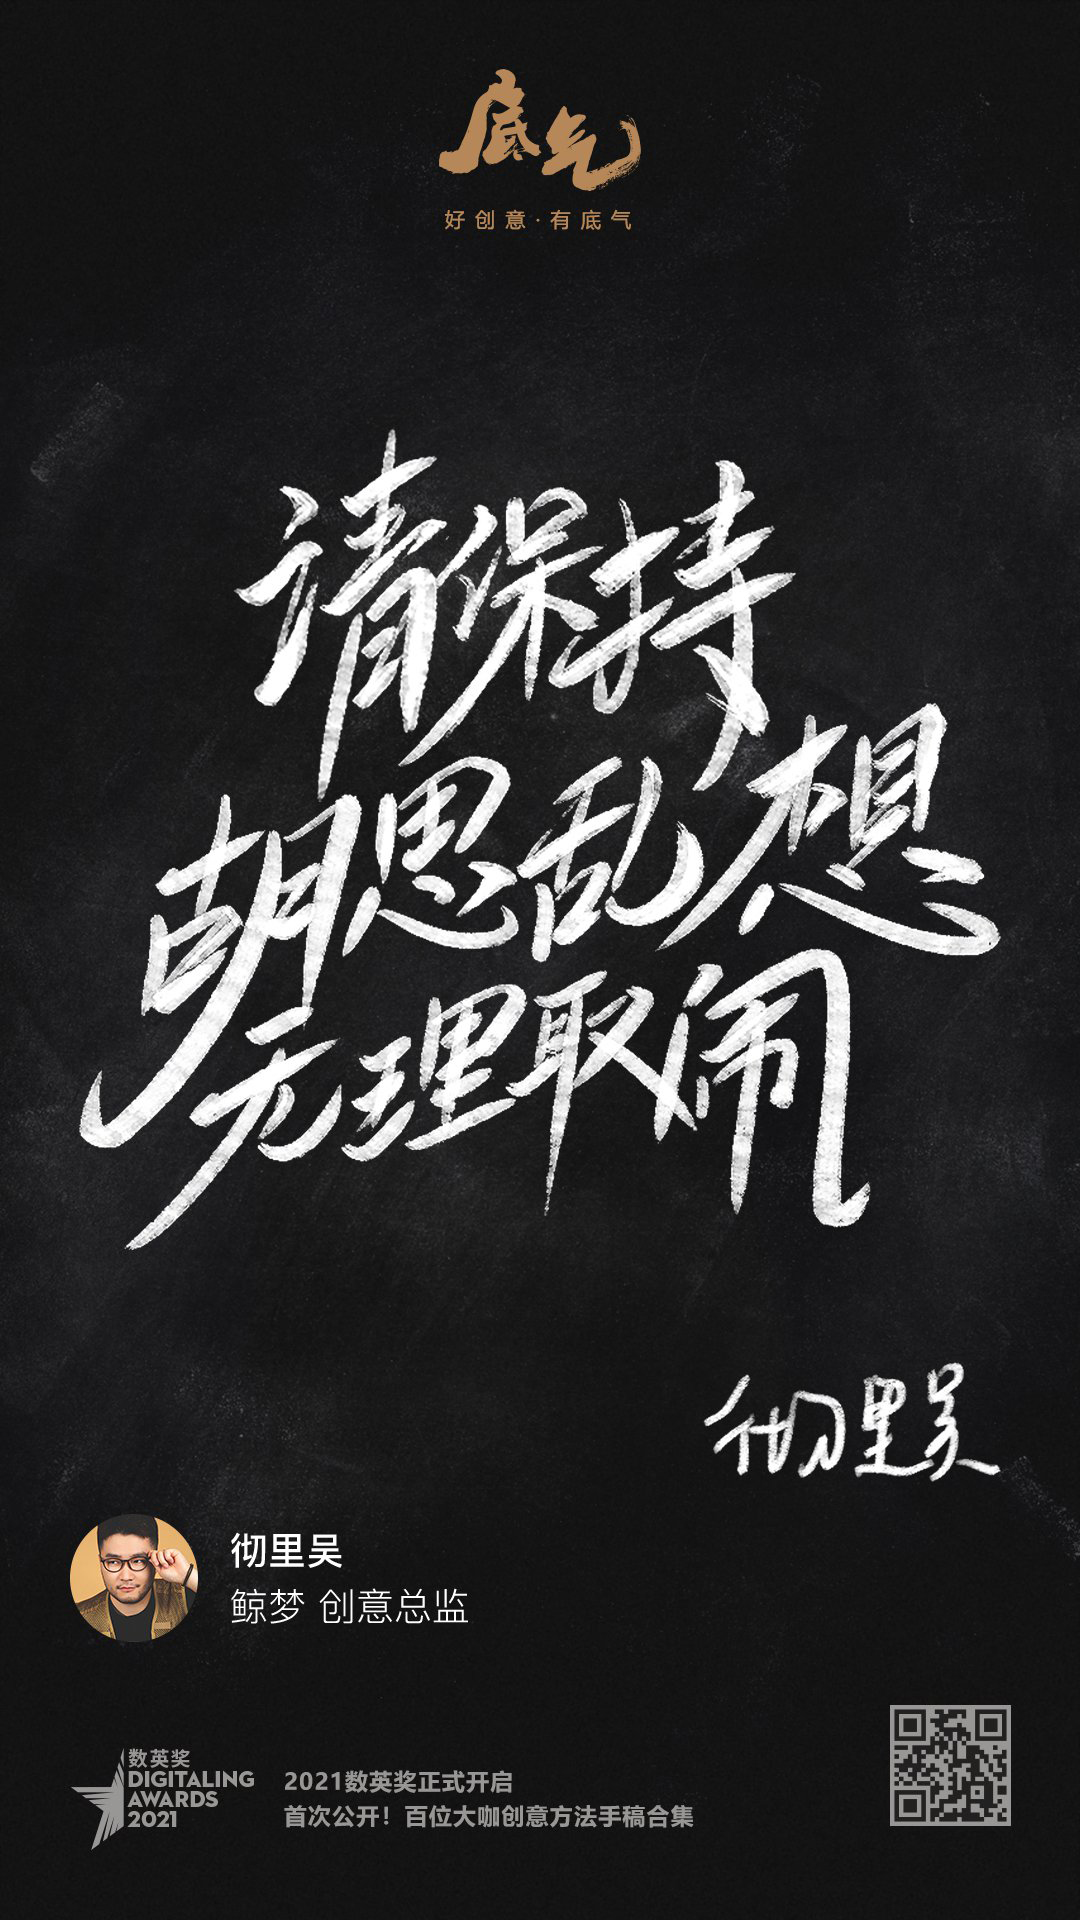 底气
好创意·有底气
请保持
胡思乱想
无理取闹
彻里吴
彻里吴
鲸梦 创意总监
数英奖
DIGITALING
AWARDS
2021
2021数英奖正式开启
首次公开！百位大咖创意方法手稿合集